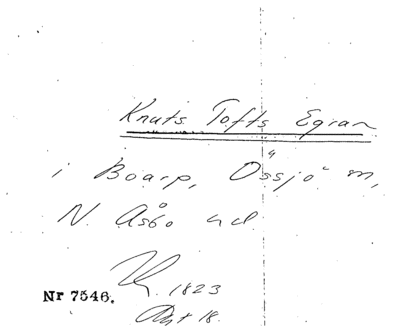 Knuts Tofts Egran
i Boarp, Össjö m,
N. Åsbo hd
1823
Nr 7546.
Akt 18.